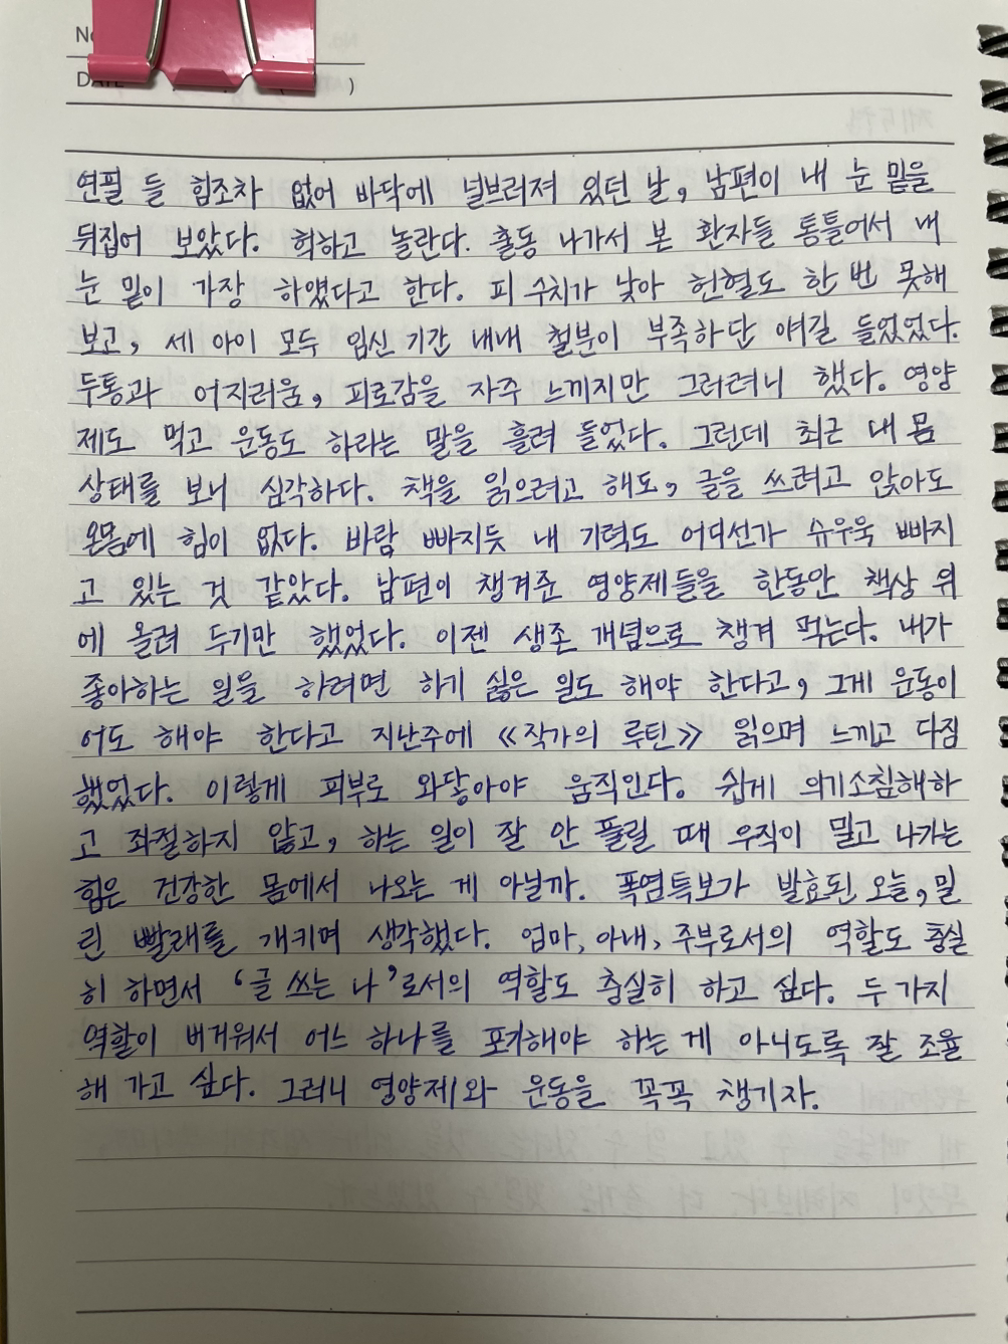 No
DATE )
연필 들 힘조차 없어 바닥에 널브러져 있던 날, 남편이 내 눈 밑을
뒤집어 보았다. 헉하고 놀란다. 출동 나가서 본 환자들 통틀어서 내
눈 밑이 가장 하얬다고 한다. 피 수치가 낮아 헌혈도 한 번 못해
보고, 세 아이 모두 임신 기간 내내 철분이 부족하단 얘길 들었었다.
두통과 어지러움, 피로감을 자주 느끼지만 그러려니 했다. 영양
제도 먹고 운동도 하라는 말을 흘려 들었다. 그런데 최근 내 몸
상태를 보니 심각하다. 책을 읽으려고 해도, 글을 쓰려고 앉아도
온몸에 힘이 없다. 바람 빠지듯 내 기력도 어디선가 슈우욱 빠지
고 있는 것 같았다. 남편이 챙겨준 영양제들을 한동안 책상 위
에 올려 두기만 했었다. 이젠 생존 개념으로 챙겨 먹는다. 내가
좋아하는 일을 하려면 하기 싫은 일도 해야 한다고, 그게 운동이
어도 해야 한다고 지난주에 《작가의 루틴》 읽으며 느끼고 다짐
했었다. 이렇게 피부로 와닿아야 움직인다. 쉽게 의기소침해하
고 좌절하지 않고, 하는 일이 잘 안 풀릴 때 우직이 밀고 나가는
힘은 건강한 몸에서 나오는 게 아닐까. 폭염특보가 발효된 오늘, 밀
린 빨래를 개키며 생각했다. 엄마, 아내, 주부로서의 역할도 충실
히 하면서 '글 쓰는 나'로서의 역할도 충실히 하고 싶다. 두 가지
역할이 버거워서 어느 하나를 포기해야 하는 게 아니도록 잘 조율
해 가고 싶다. 그러니 영양제와 운동을 꼭꼭 챙기자.